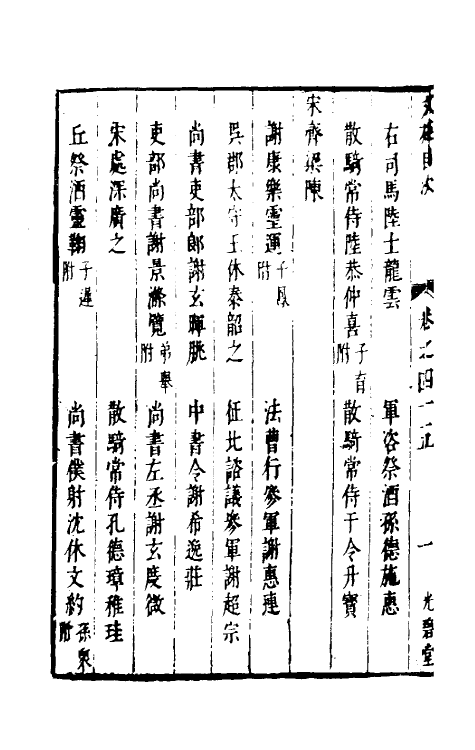 右司馬陸士龍雲
軍咨祭酒孫德施惠
散騎常侍陸恭仲喜子育附
散騎常侍干令升寶
宋齊梁陳
謝康樂靈運子鳳附
法曹行參軍謝惠連
吳郡太守王休泰韶之
征北諮議參軍謝超宗
尚書吏部郎謝玄暉朓
中書令謝希逸莊
吏部尚書謝景滌覽弟舉附
尚書左丞謝玄度微
宋處深廣之
散騎常侍孔德璋稚珪
丘祭酒靈鞠子遲附
尚書僕射沈休文約孫衆附
目次
卷之四
一
光碧堂